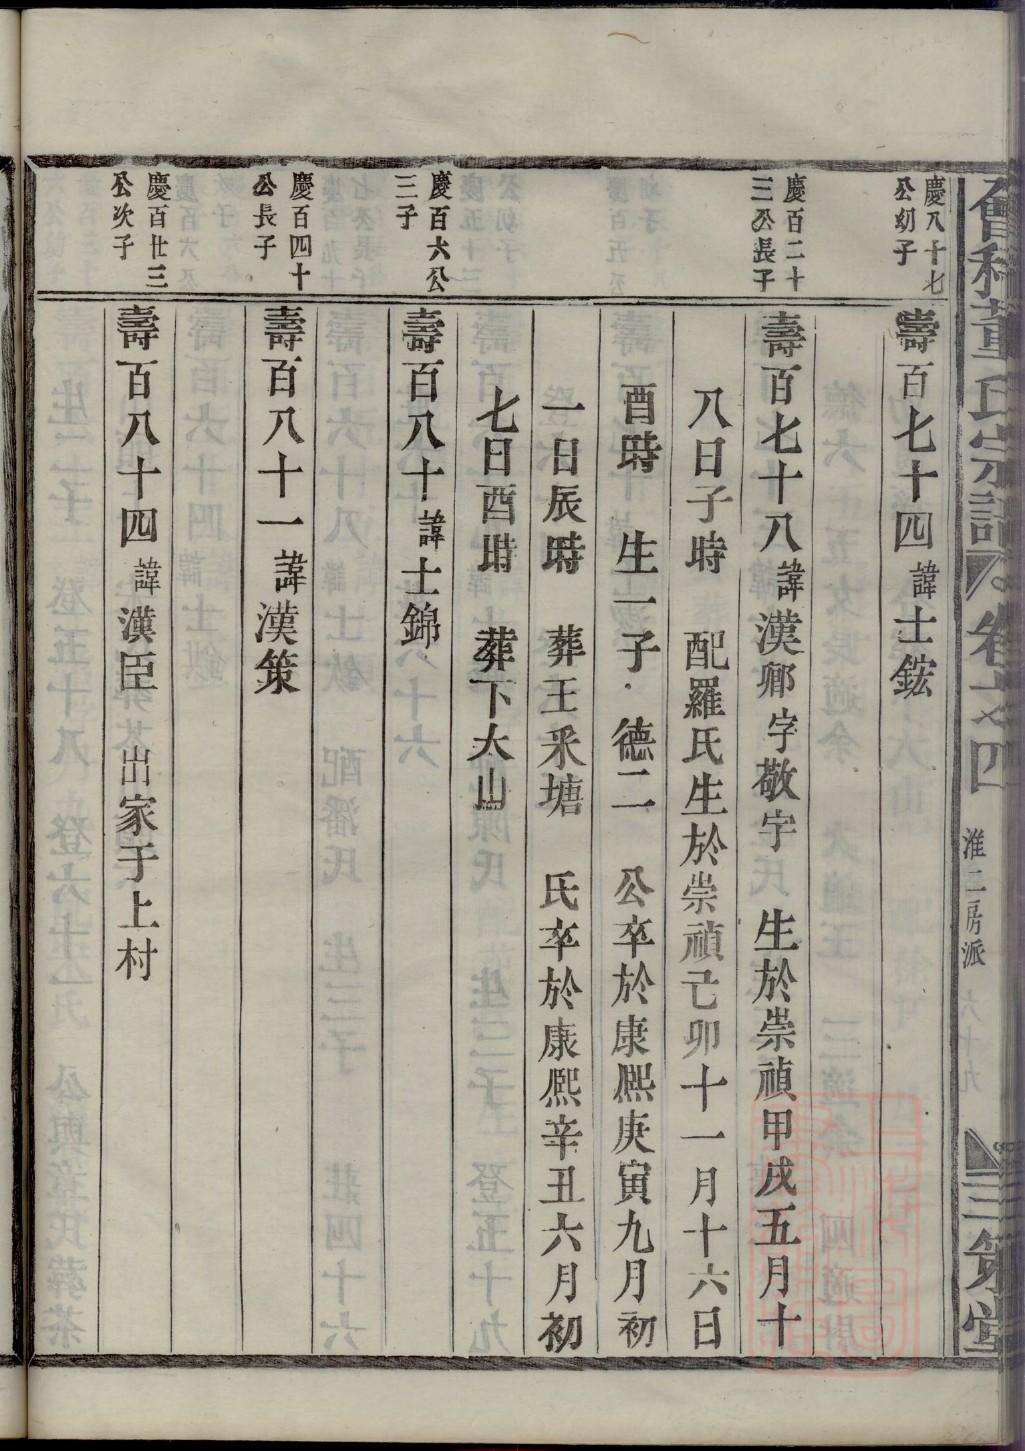 會稽董氏宗譜 卷之四 淮二房派 六十九 三策堂
慶八十七
公幼子
壽百七十四 諱士鋐
慶百二十
三公長子
壽百七十八 諱漢卿 字敬宇 生於崇禎甲戌五月十
八日子時 配羅氏生於崇禎己卯十一月十六日
酉時 生一子 德二 公卒於康熙庚寅九月初
一日辰時 葬王釆塘 氏卒於康熙辛丑六月初
七日酉時 葬下大山
慶百六公
三子
壽百八十 諱士錦
慶百四十
公長子
壽百八十一 諱漢策
慶百廿三
公次子
壽百八十四 諱漢臣 出家于上村